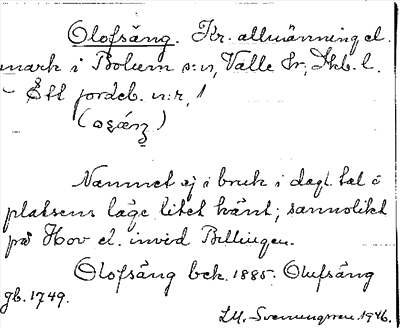 Olofsäng. Kr. allmänning el.
mark i Bolum s:n, Valle hr, Skb. l.
- Ett jordeb. n:r, 1
Namnet ej i bruk i dagl. tal o
platsens läge litet känt; sannolikt
på Hov el. invid Billingen.
Olofsäng bek. 1885. Olufsäng
gb. 1749.
1946.